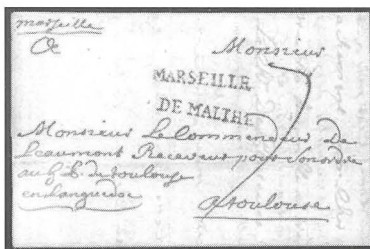 marseille
Monsieur
MARSEILLE
DE MALTHE
Monsieur Le Commandeur De
Leaumont Receveur pour Son ordre
au G. P. de toulouse
en Languedoc
a toulouse